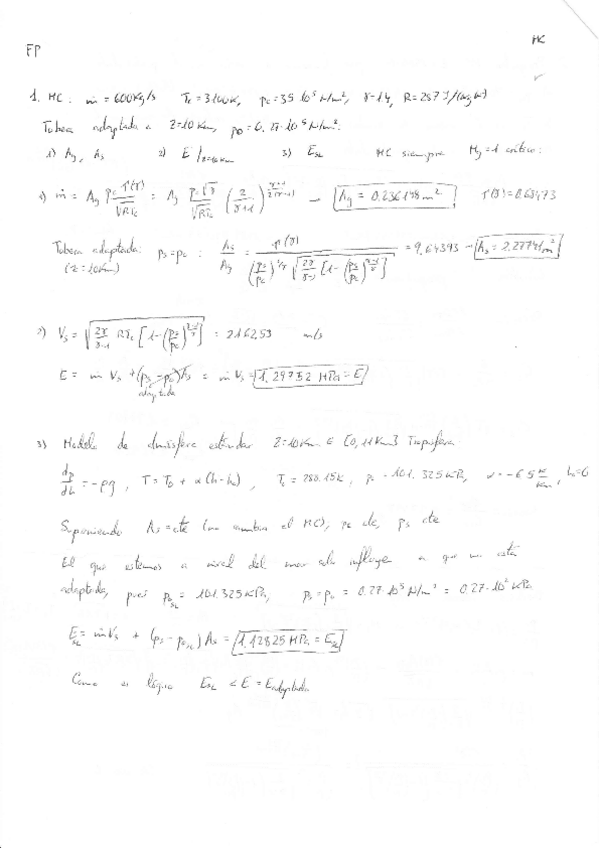 MC
FP
1. MC: ṁ = 600 Kg/s Tc = 3100K, pc = 35·10⁵ N/m², γ=1.4, R = 287 J/(kg K)
Tobera adaptada a Z=10Km, p₀ = 0.27·10⁵ N/m².
1) Ag, As 2) E|z=10km 3) E_SL MC siempre Mg=1 crítico:
1) ṁ = Ag pc Γ(γ)/√(RTc) = Ag pc√γ/√(RTc) (2/(γ+1))^((γ+1)/(2(γ-1))) → Ag = 0.236148 m² Γ(γ)=0.68473
Tobera adaptada: ps=p₀ : As/Ag = Γ(γ)/((ps/pc)^(1/γ) √(2γ/(γ-1) [1-(ps/pc)^((γ-1)/γ)])) = 9.64393 → As = 2.27741 m²
(z=10km)
2) Vs = √(2γ/(γ-1) RTc [1-(ps/pc)^((γ-1)/γ)]) = 2162,53 m/s
E = ṁ Vs + (ps-p₀)As = ṁ Vs = 1.29752 MPa = E
adaptada
3) Modelo de atmósfera estándar Z=10Km ∈ [0,11Km] Troposfera.
dp/dh = -ρg, T = T₀ + α(h-h₀), T₀ = 288.15K, p₀ = 101.325 KPa, α = -6.5 K/Km, h₀=0
Suponiendo As=cte (no cambia el MC), pc cte, ps cte
El que estemos a nivel del mar sólo influye a que no está
adaptada, pues p₀SL = 101.325 KPa, ps = p₀ = 0.27·10⁵ N/m² = 0.27·10² KPa
E_SL = ṁVs + (ps-p₀SL) As = 1.12825 MPa = E_SL
Como es lógico E_SL < E = E adaptada